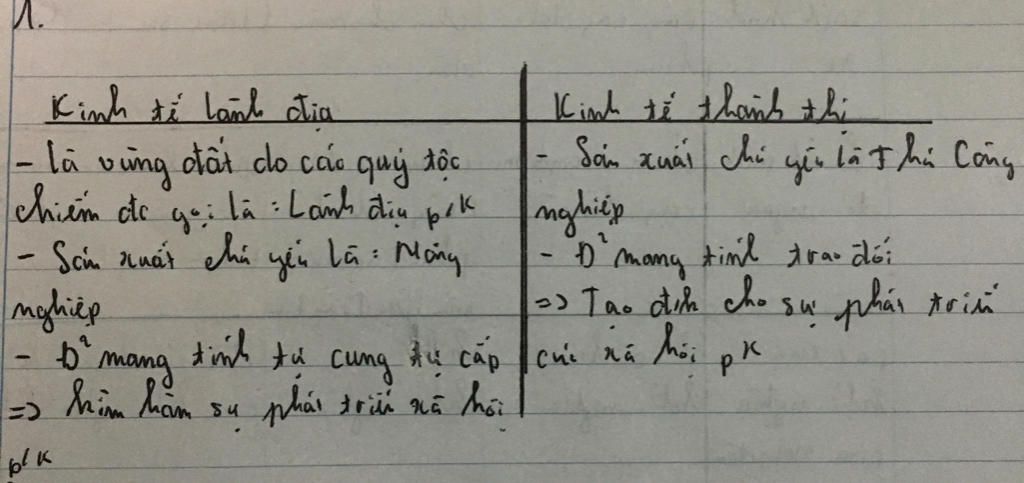 1.
Kinh tế lãnh địa
- là vùng đất do các quý tộc
chiếm đc gọi là : Lãnh địa p/K
- Sản xuất chủ yếu là : Nông
nghiệp
- Đ² mang tính tự cung tự cấp
=> kìm hãm sự phát triển xã hội
p/K
Kinh tế thành thị
- Sản xuất chủ yếu là Thủ Công
nghiệp
- Đ² mang tính trao đổi
=> Tạo đk cho sự phát triển
của xã hội pK